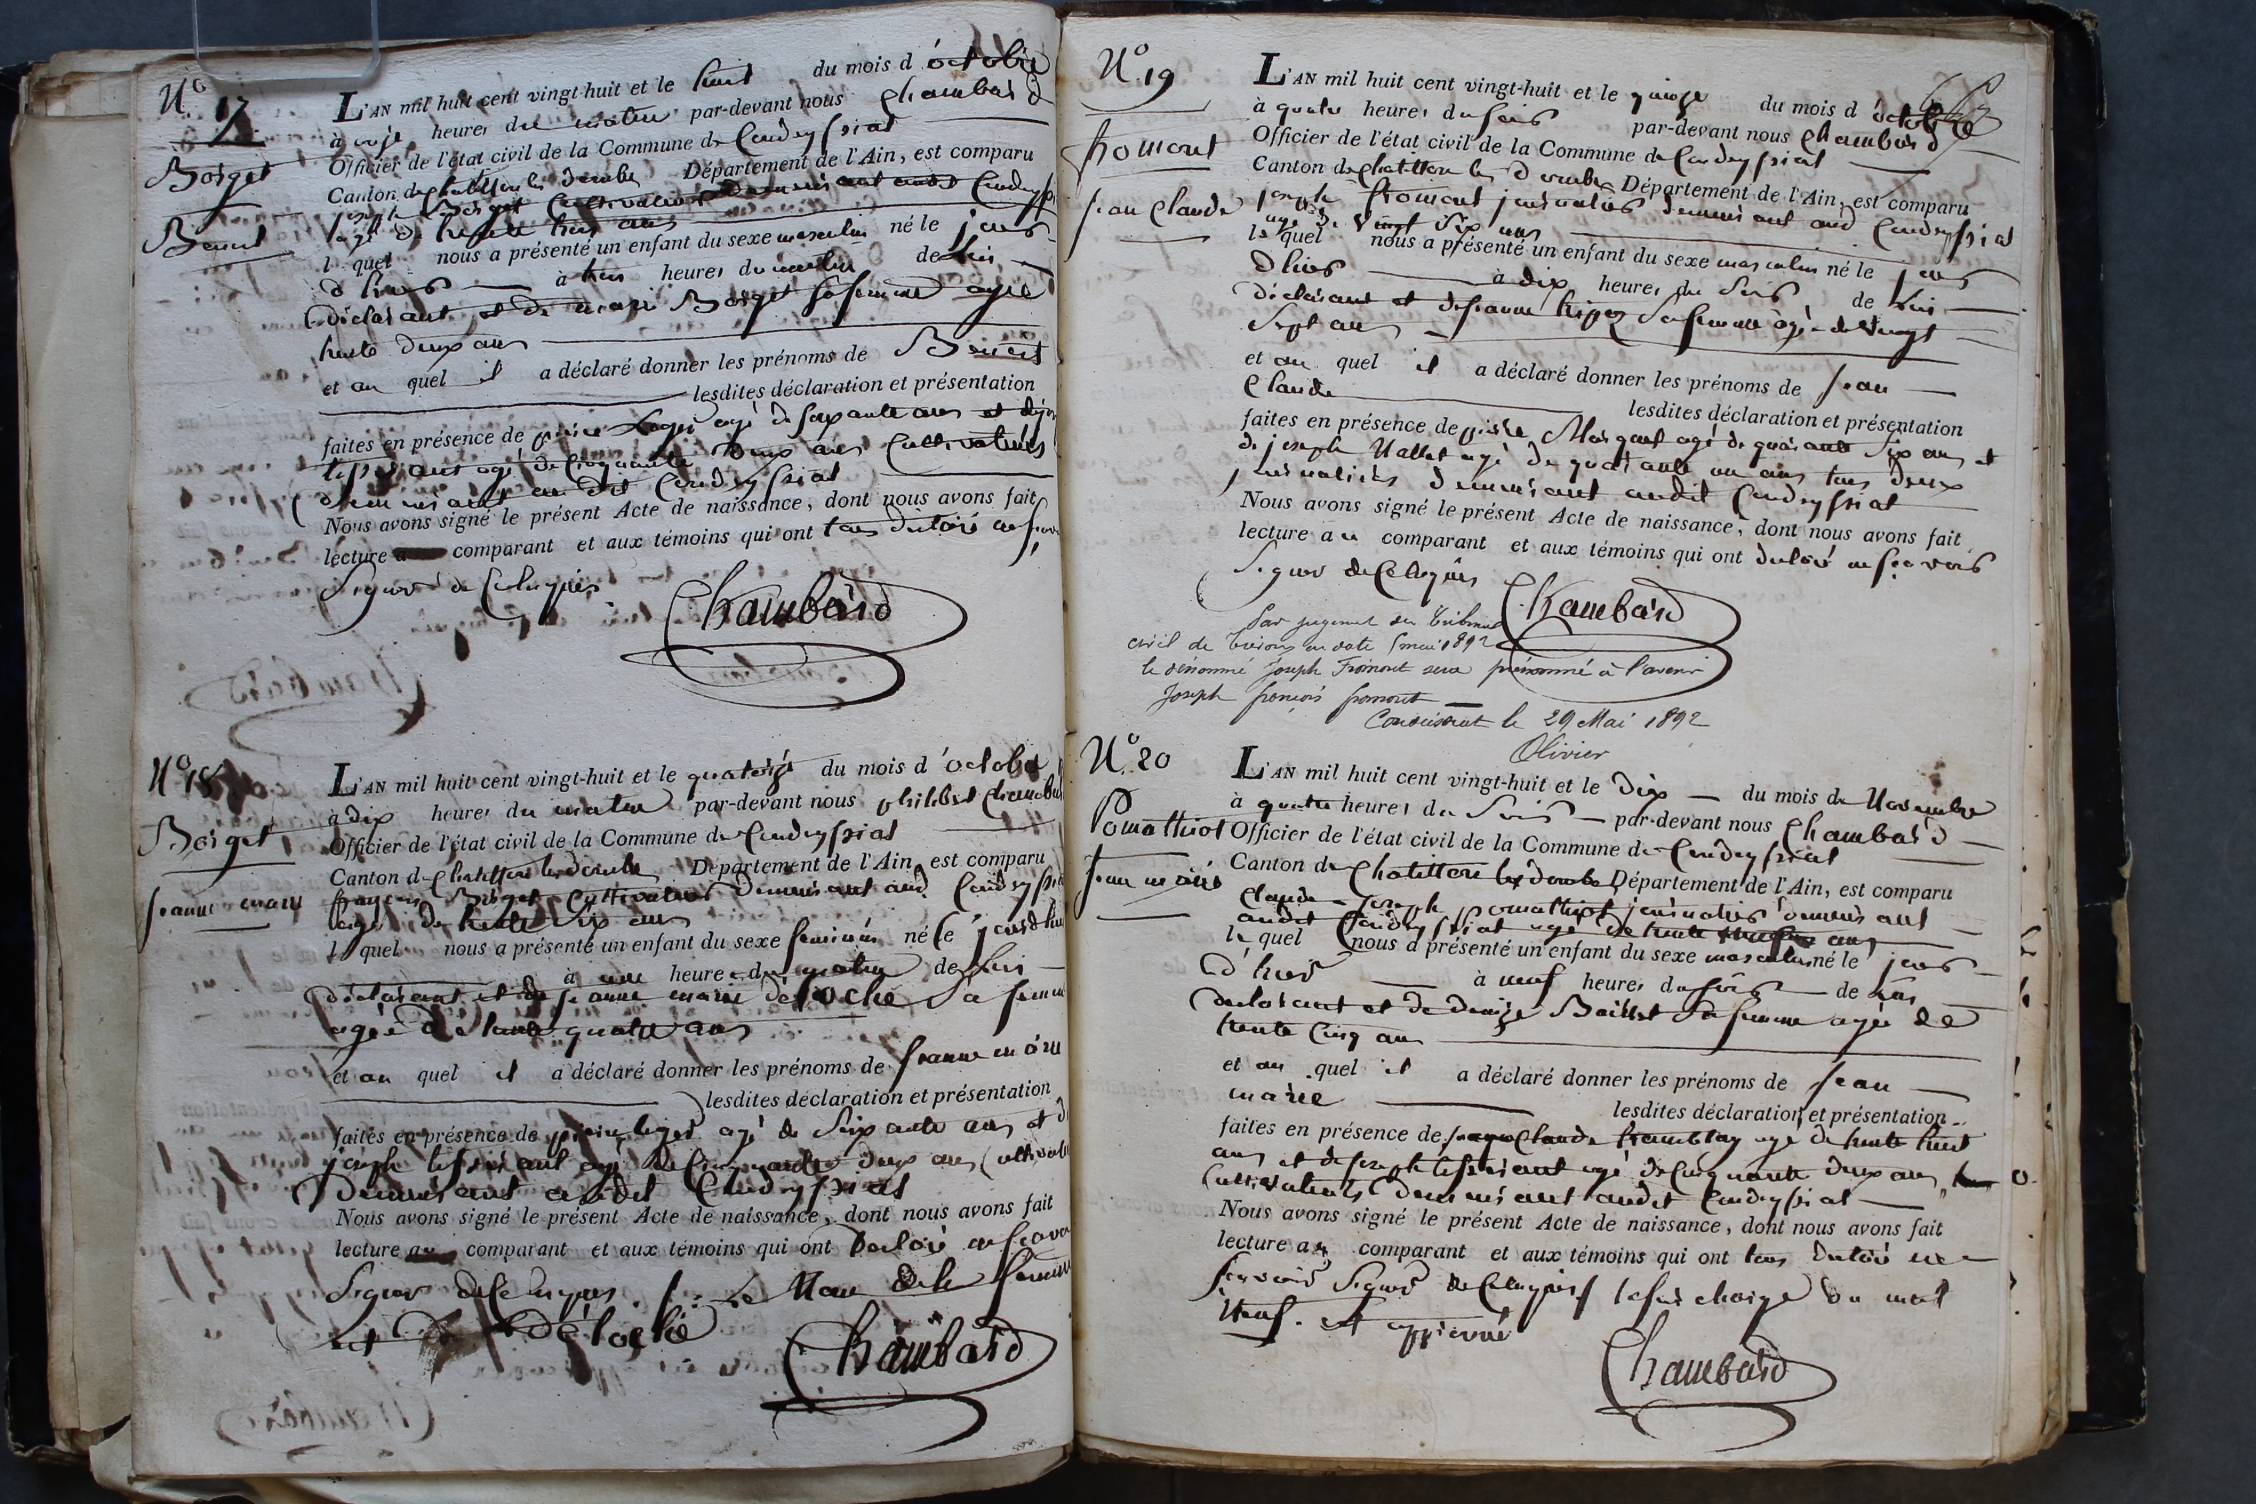 N° 17
Borget
Benoit
L'AN mil huit cent vingt-huit et le huit du mois d'octobre
à onze heures du matin par-devant nous Chambard
Officier de l'état civil de la Commune de Condeyssiat
Canton de Chatillon les dombes Département de l'Ain, est comparu
joseph Borget Cultivateur demeurant audit Condeyssi
agé de trente trois ans
lequel nous a présenté un enfant du sexe masculin né le jour
d'hier à trois heures du matin de lui
déclarant et de marie Borget sa femme agée
trente deux ans
et au quel il a déclaré donner les prénoms de Benoit
lesdites déclaration et présentation
faites en présence de pierre Leger agé de soixante ans et de jo
tisserant agé de Cinquante deux ans Cultivateurs
demeurant au dit Condeyssiat
Nous avons signé le présent Acte de naissance, dont nous avons fait
lecture comparant et aux témoins qui ont tous declaré ne savoir
Signer de Ce requis
Chambard
N° 18
Borget
jeanne marie
L'AN mil huit cent vingt-huit et le quatorze du mois d'octobre
à dix heures du matin par-devant nous philibert Chambar
Officier de l'état civil de la Commune de Condeyssiat
Canton de Chatillon les dombes Département de l'Ain, est comparu
françois Borget Cultivateur demeurant aud Condeyssia
agé de trente six ans
lequel nous a présenté un enfant du sexe feminin né le jourd'hui
à une heure du matin de lui
déclarant et de jeanne marie déloche sa femme
agée de trente quatre ans
et au quel il a déclaré donner les prénoms de jeanne marie
lesdites déclaration et présentation
faites en présence de pierre leger agé de soixante ans et d
joseph tisserant agé de Cinquante deux ans Cultivate
Demeurant audit Condeyssiat
Nous avons signé le présent Acte de naissance, dont nous avons fait
lecture au comparant et aux témoins qui ont declaré ne savoir
Signer de Ce requis . / . Le Nom de la femme
est déloche
Chambard
N° 19
fromont
jean Claude
L'AN mil huit cent vingt-huit et le quinze du mois d'octobre
à quatre heures du soir par-devant nous Chambard
Officier de l'état civil de la Commune de Condeyssiat
Canton de Chatillon les dombes Département de l'Ain, est comparu
joseph fromont journalier demeurant aud Condeyssiat
agé de vingt six ans
le quel nous a présenté un enfant du sexe masculin né le jour
d'hier à dix heures du soir de lui
déclarant et de jeanne sa femme agée de vingt
sept ans
et au quel il a déclaré donner les prénoms de jean
Claude
lesdites déclaration et présentation
faites en présence de pierre Morquet agé de quarante six ans et
de joseph Nallet agé de quarante un ans tous deux
journaliers demeurant audit Condeyssiat
Nous avons signé le présent Acte de naissance, dont nous avons fait
lecture au comparant et aux témoins qui ont declaré ne savoir
Signer de Ce requis
Chambard
Par jugement du Tribunal
civil de Trévoux en date 5 mai 1892
le dénommé Joseph Fromont sera prénommé à l'avenir
Joseph françois fromont
Condeissiat le 29 Mai 1892
Olivier
N° 20
Pomathiot
jean marie
L'AN mil huit cent vingt-huit et le dix du mois de Novembre
à quatre heures du Soir par-devant nous Chambard
Officier de l'état civil de la Commune de Condeyssiat
Canton de Chatillon les dombes Département de l'Ain, est comparu
Claude joseph pomathiot journalier demeurant
audit Condeyssiat agé de trente ans
le quel nous a présenté un enfant du sexe masculin né le jour
d'hier à neuf heures du soir de lui
declarant et de denize Baillet sa femme agée de
trente Cinq ans
et au quel il a déclaré donner les prénoms de jean
marie
lesdites déclaration et présentation
faites en présence de Claude tramblay agé de trente huit
ans et de joseph tisserant agé de Cinquante deux ans
Cultivateurs demeurant audit Condeyssiat
Nous avons signé le présent Acte de naissance, dont nous avons fait
lecture au comparant et aux témoins qui ont tous declaré ne
scavoir Signer de Ce requis / la surcharge du mot
Neuf . est approuvé
Chambard